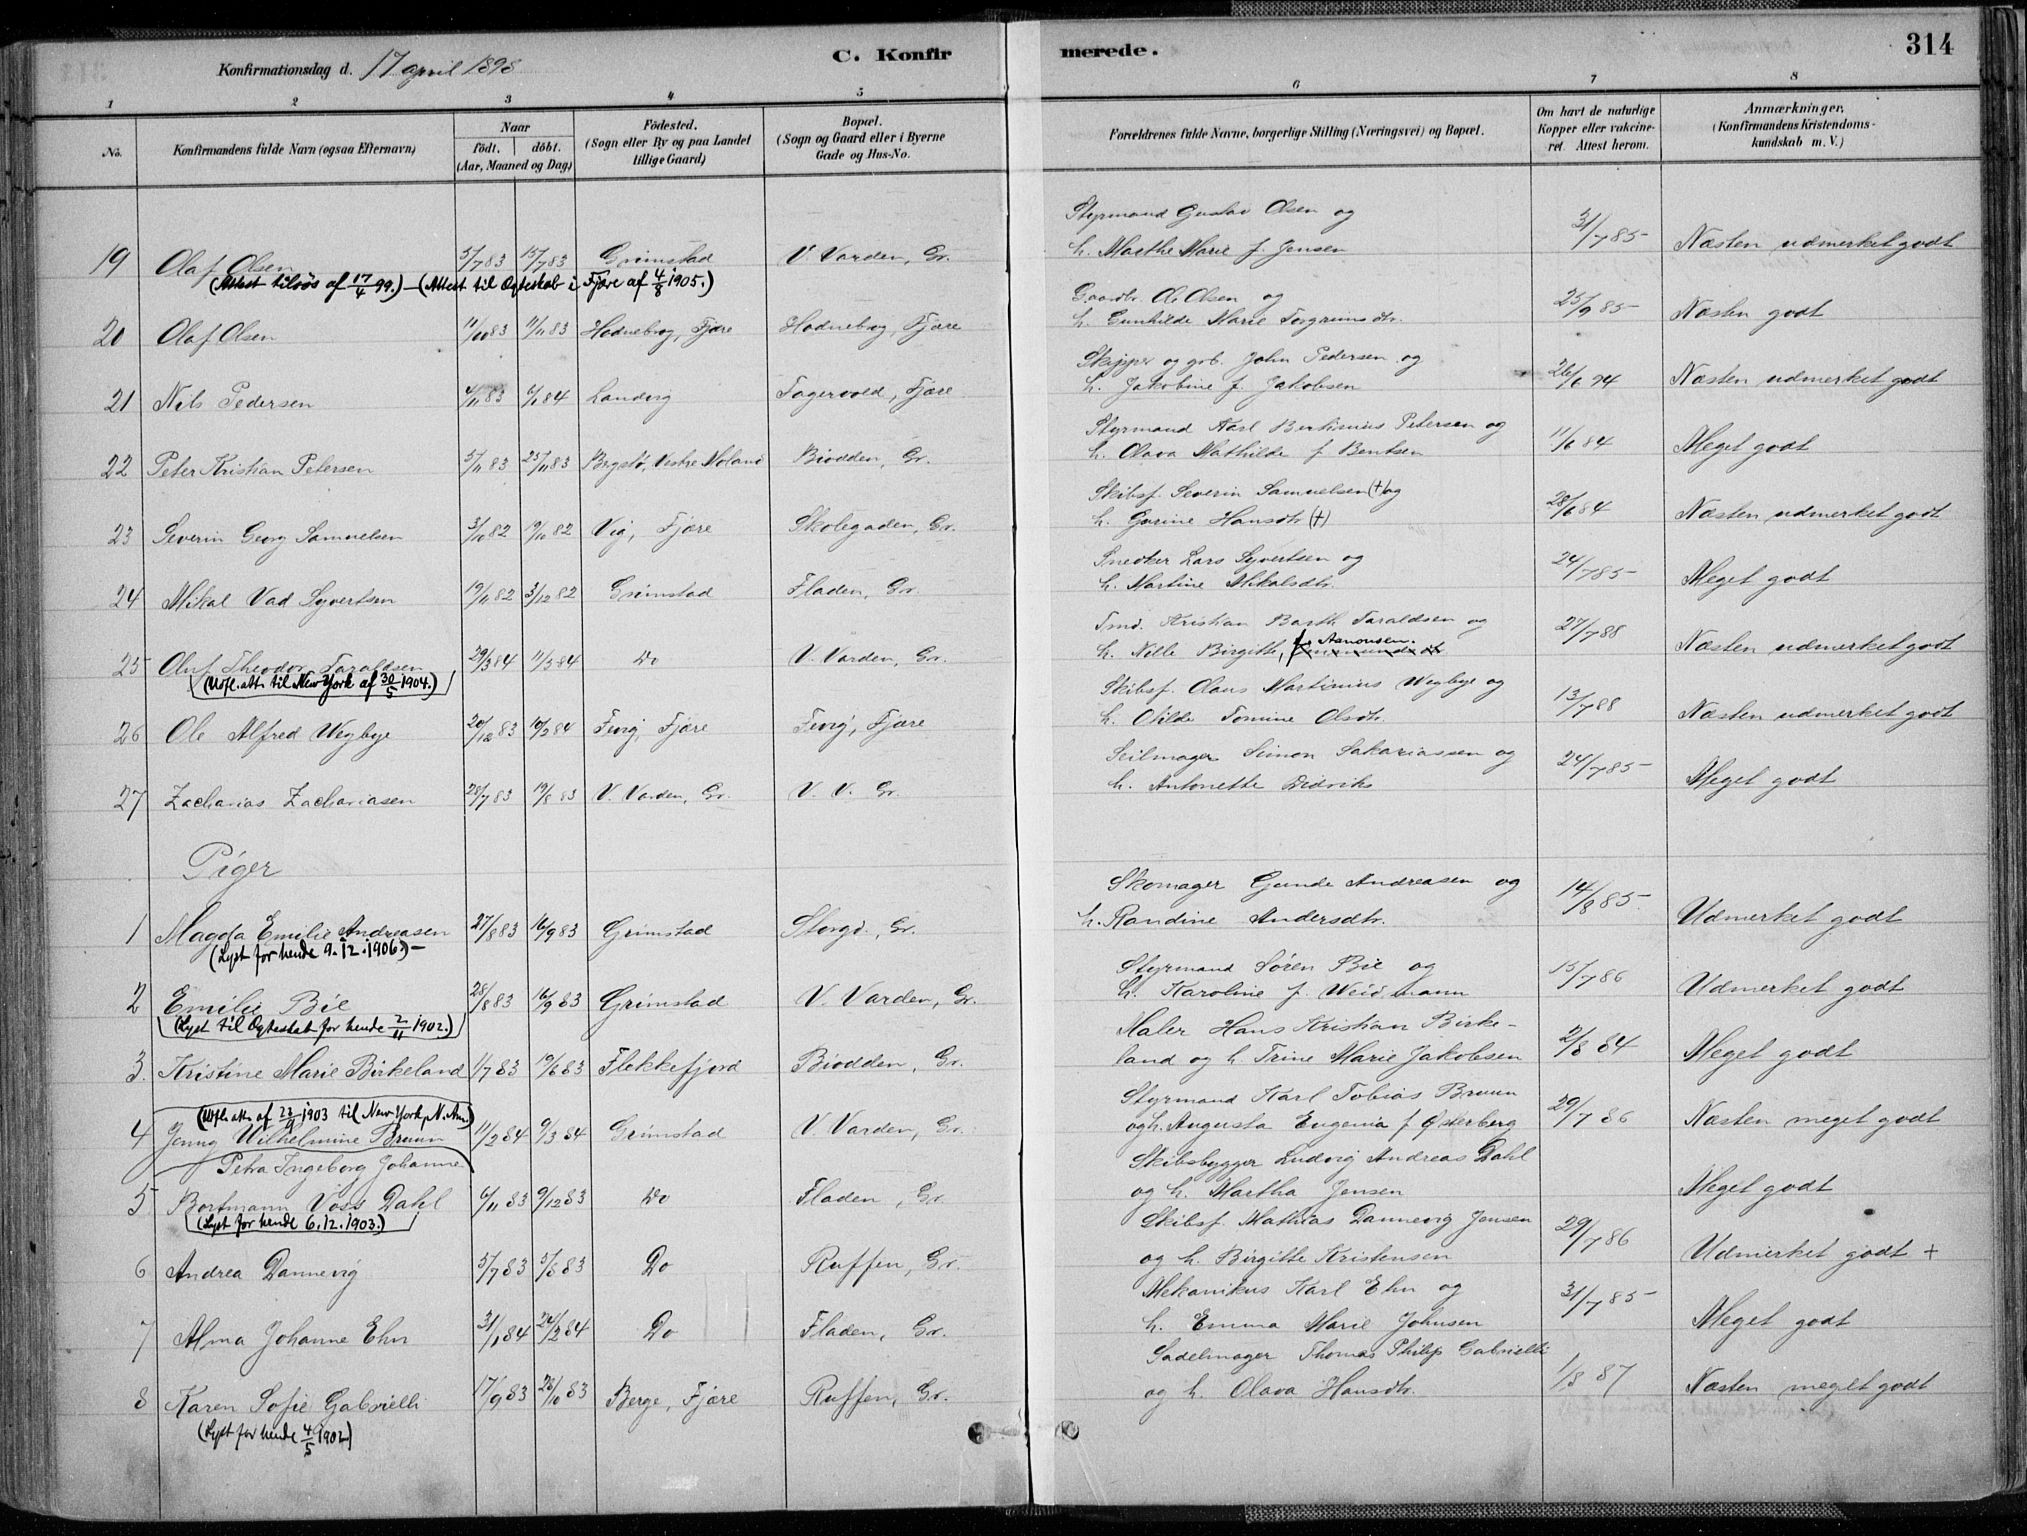 Konfirmationsdag d. 17 april 1898 C. Konfir merede. 314
1 2 3 4 5 6 7 8
No. Konfirmandens fulde Navn (ogsaa Efternavn) Naar født. døbt. (Aar, Maaned og Dag) Fødested. (Sogn eller By og paa Landet tillige Gaard) Bopæl. (Sogn og Gaard eller i Byerne Gade og Hus-No. Forældrenes fulde Navne, borgerlige Stilling (Næringsvei) og Bopæl. Om havt de naturlige Kopper eller vakcineret. Attest herom. Anmærkninger. (Konfirmandens Kristendomskundskab m. V.)
Styrmand Gustav Olsen og
19 Olaf Olsen 5/7 83 15/7 83 Grimstad V. Varden, Gr. h. Marthe Marie f. Jensen 31/7 85 Næsten udmerket godt
(Attest tilsøs af 17/4 99.) – (Attest til Ægteskab i Fjære af 4/8 1905.)
Gaardbr. O. Olsen og
20 Olaf Olsen 11/10 83 11/11 83 Hodnebrog, Fjære Hodnebrog, Fjære h. Gunhilde Marie Torgrimsdtr. 25/9 85 Næsten godt
Skipper og grb. John Pedersen og
21 Nils Pedersen 4/11 83 6/1 84 Landvig Fagervold, Fjære h. Jakobine f. Jakobsen 26/6 94 Næsten udmerket godt
Styrmand Karl Bertinius Petersen og
22 Peter Kristian Petersen 5/11 83 25/11 83 Bergstø, Vestre Moland Biodden, Gr. h. Olava Mathilde f. Bentsen 11/6 84 Meget godt
Skibsf. Severin Samuelsen (+) og
23 Severin Georg Samuelsen 3/10 82 19/11 82 Vig, Fjære Skolegaden, Gr. h. Gurine Hansdtr (+) 28/6 84 Næsten udmerket godt
Snedker Lars Syvertsen og
24 Mikal Vad Syvertsen 19/11 82 3/12 82 Grimstad Fladen, Gr. h. Martine Mikalsdtr. 24/7 85 Meget godt
Tmd. Kristian Barth Taraldsen og
25 Oluf Theodor Taraldsen 29/3 84 11/5 84 Do V. Varden, Gr. h. Nille Birgitte, f. Aanonsen. 27/7 88 Næsten udmerket godt
(Udfl. att. til New York af 30/5 1904.)
Skibsf. Olaus Martinius Wegbye og
26 Ole Alfred Wegbye 20/12 83 10/2 84 Fevig, Fjære Fevig, Fjære h. Otilde Tomine Olsdtr. 13/7 88 Næsten udmerket godt
Seilmager Simon Sakariassen og
27 Zacharias Zachariasen 28/7 83 19/8 83 V. Varden, Gr. V. V. Gr. h. Antonette Didriks 24/7 85 Meget godt
Piger
Skomager Gunde Andreasen og
1 Magda Emilie Andreasen 27/8 83 16/9 83 Grimstad Storgd., Gr. h. Randine Andersdtr. 14/8 85 Udmerket godt
(Lyst for hende 9.12.1906.) –
Styrmand Søren Bie og
2 Emilie Bie 28/8 83 16/9 83 Grimstad V. Varden, Gr. h. Karoline f. Weidemann 15/7 86 Udmerket godt
(Lyst til Ægteskab for hende 2/11 1902.)
Maler Hans Kristian Birke-
3. Kristine Marie Birkeland 1/7 83 19/8 83 Flekkefjord Biodden, Gr. land og h. Trine Marie Jakobsen 2/8 84 Meget godt
(Udfl. att. af 23/9 1903 til New York, N. Am.)
Styrmand Karl Tobias Bruun
4 Jenny Wilhelmine Bruun 11/2 84 9/3 84 Grimstad V. Varden, Gr. og h. Augusta Eugenia f. Østerberg 29/7 86 Næsten meget godt
Petra Ingeborg Johanne Skibsbygger Ludvig Andreas Dahl
5 Bortmann Voss Dahl 6/11 83 9/12 83 Do Fladen, Gr. og h. Martha Jensen Meget godt
(Lyst for hende 6.12.1903.)
Skibsf. Mathias Dannevig Jensen
6 Andrea Dannevig 5/7 83 5/8 83 Do Ruffen, Gr. og h. Birgitte Kristensen 29/7 86 Udmerket godt +
Mekanikus Karl Ehn og
7 Alma Johanne Ehn 31/1 84 24/2 84 Do Fladen, Gr. h. Emma Marie Johnsen 31/7 85 Meget godt
Sadelmager Thomas Philip Gabrielli
8 Karen Sofie Gabrielli 17/9 83 28/10 83 Berge, Fjære Ruffen, Gr. og h. Olava Hansdtr. 1/8 87 Næsten meget godt
(Lyst for hende 4/5 1902)